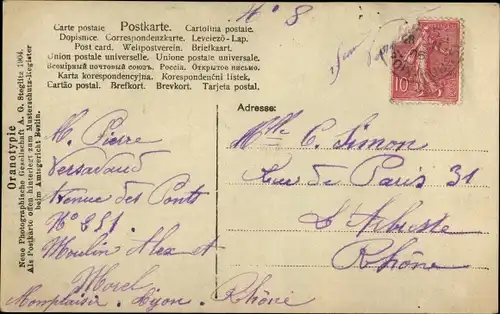 N° 8
Carte postale Postkarte. Cartolina postale.
Dopisnice. Correspondenzkarte. Levelező-Lap.
Post card. Weltpostverein. Briefkaart.
Union postale universelle. Unione postale universale.
Всемірный почтовый союзъ. Россія. Открытое письмо.
Karta korespondencyjna. Korespondenční lístek.
Cartão postal. Brefkort. Brevkort. Tarjeta postal.
10
Oranotypie
Neue Photographische Gesellschaft A. G. Steglitz 1904.
Als Postkarte offen hinterlegt zum Musterschutz-Register
beim Amtsgericht Berlin.
Adresse:
M. Pierre
Versavaud
Avenue des Ponts
N° 251
Moulin Alex et
Morel
Monplaisir. Lyon. Rhône
Mlle C. Simon
Rue de Paris 31
L'Arbuste
Rhône